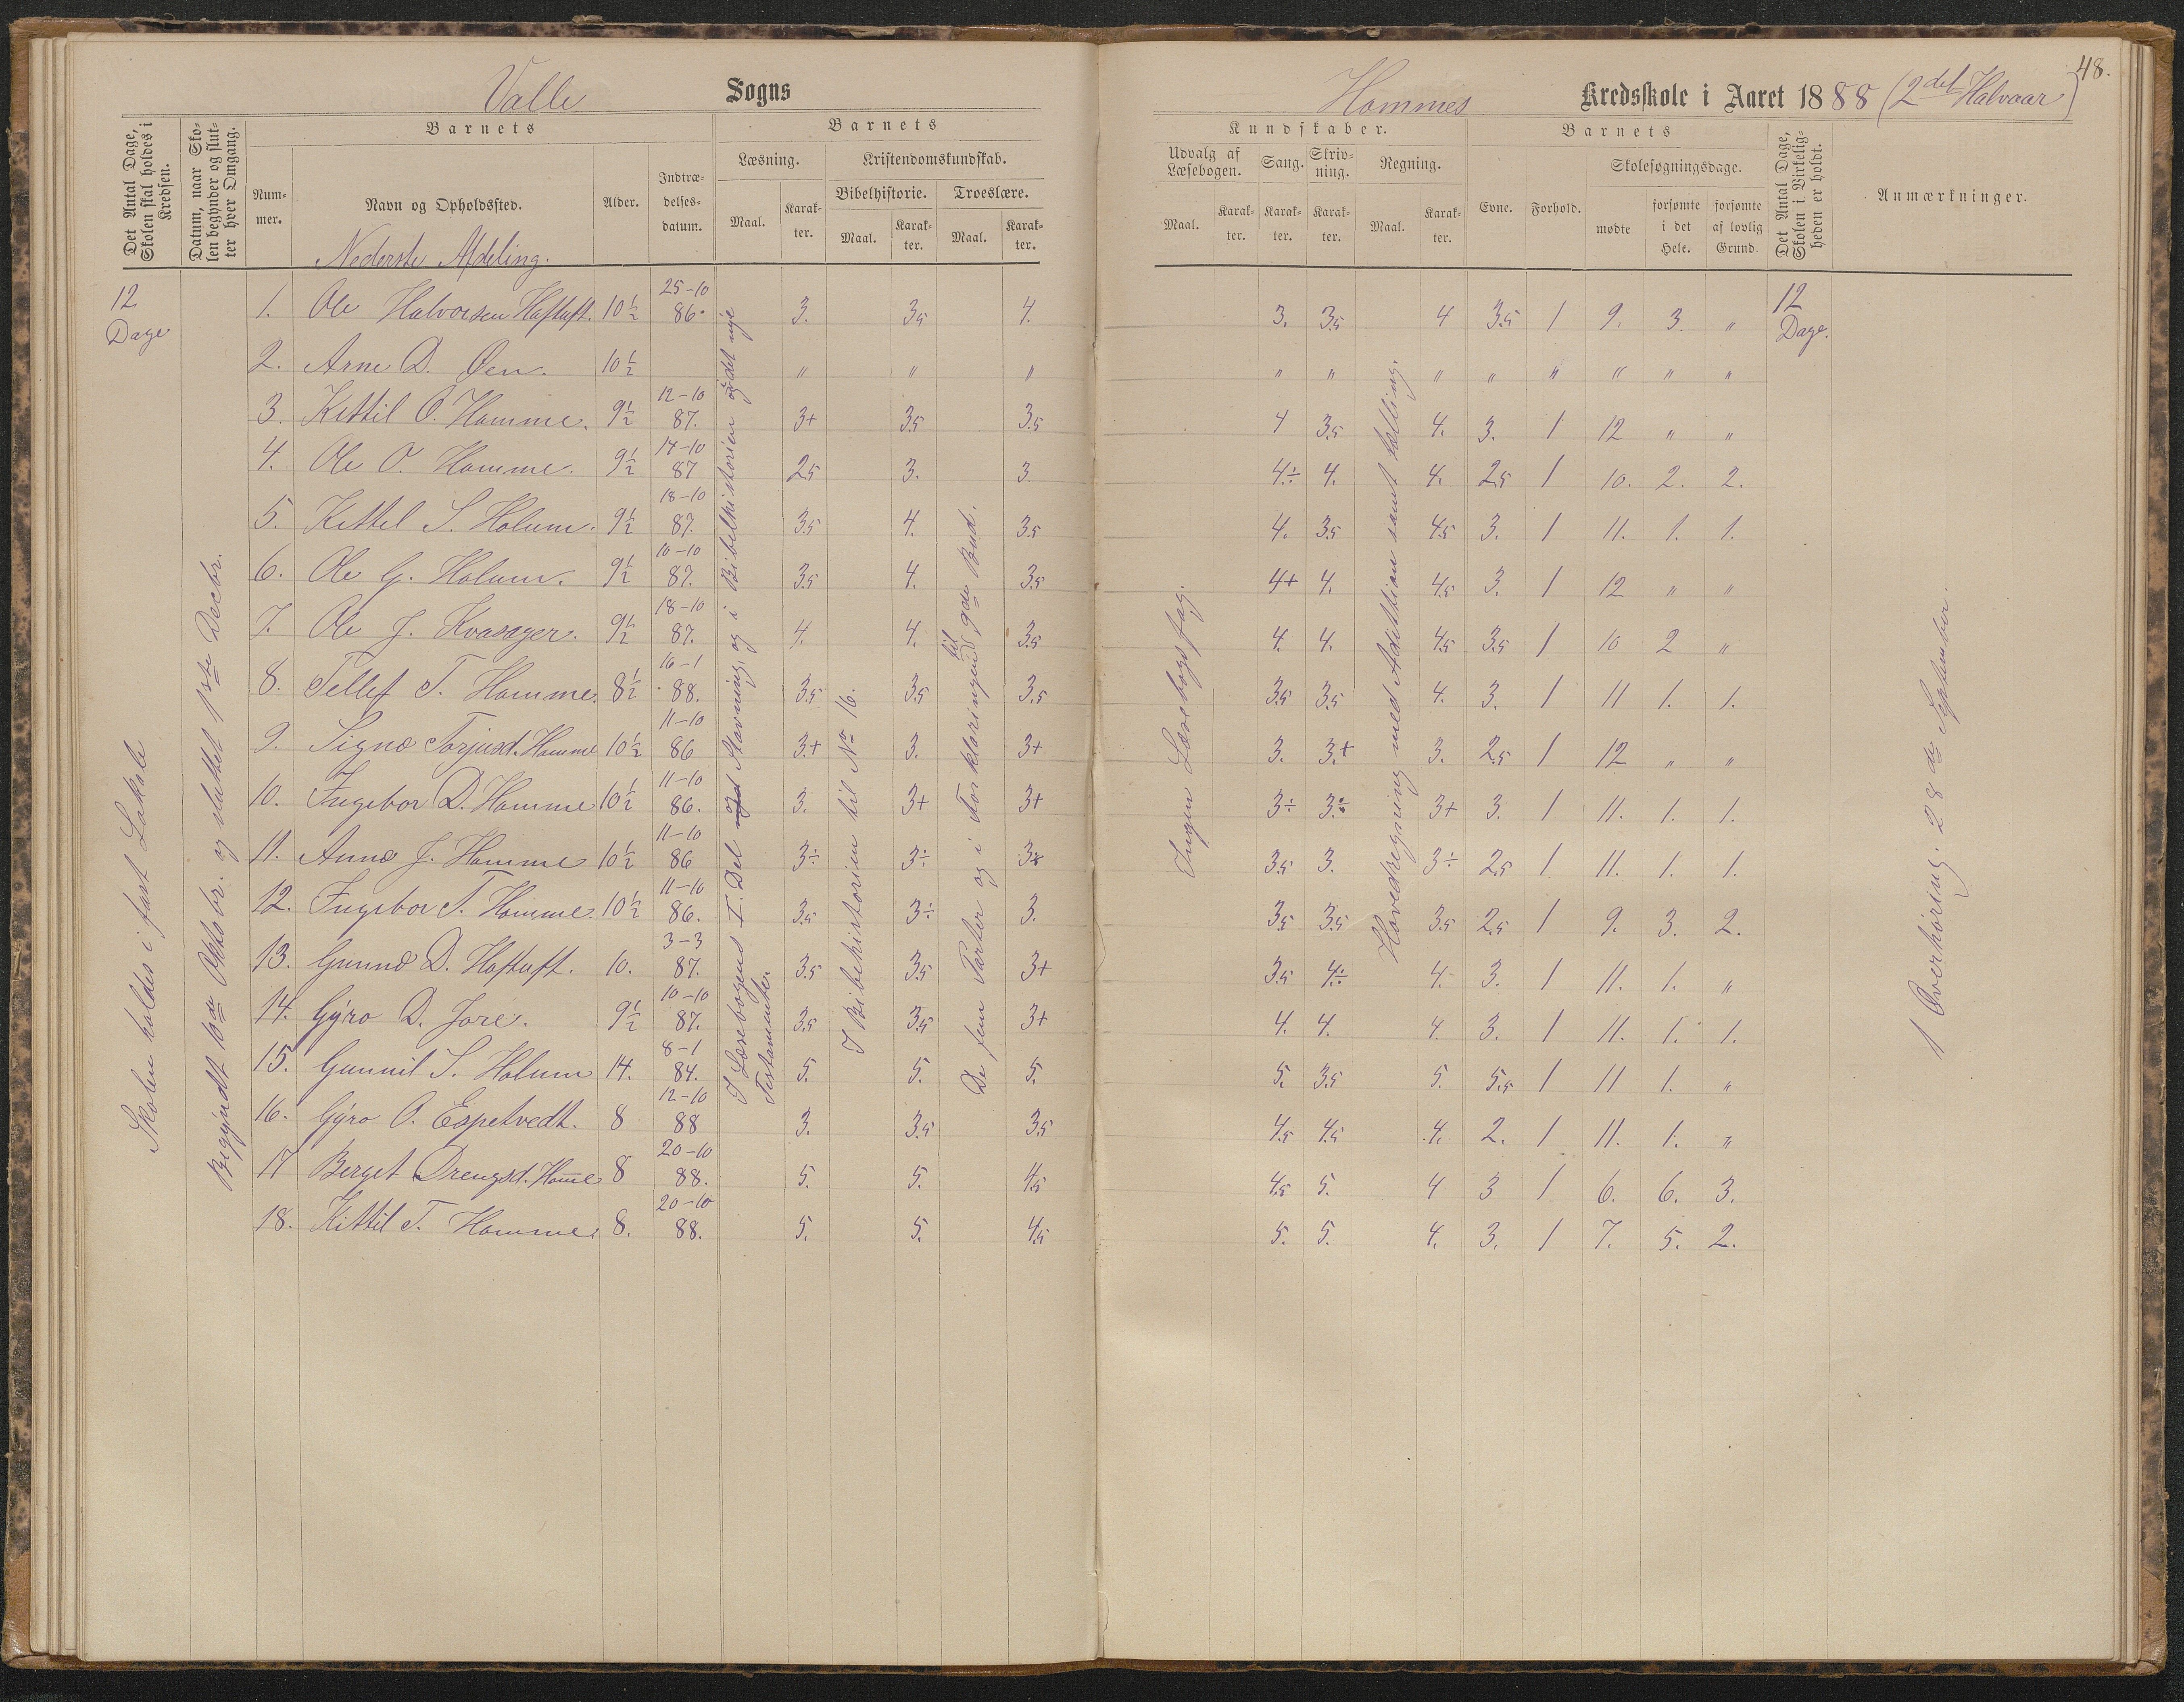 48.
Valle Sogns
Hommes Kredsskole i Aaret 1888 (2det Halvaar)
Det Antal Dage, Skolen skal holdes i Kredsen.
Datum, naar Skolen begynder og slutter hver Omgang.
Barnets
Nummer.
Navn og Opholdssted.
Alder.
Indtrædelsesdatum.
Barnets
Læsning.
Maal.
Karakter.
Kristendomskundskab.
Bibelhistorie.
Maal.
Karakter.
Troeslære.
Maal.
Karakter.
Kundskaber.
Udvalg af Læsebogen.
Maal.
Karakter.
Sang.
Karakter.
Skrivning.
Karakter.
Regning.
Maal.
Karakter.
Barnets
Evne.
Forhold.
Skolesøgningsdage.
mødte
forsømte i det Hele.
forsømte af lovlig Grund.
Det Antal Dage, Skolen i Virkeligheden er holdt.
Anmærkninger.
Nederste Afdeling.
12 Dage
1. Ole Halvorsen Haftuft. 10½ 25-10 86. 3. 3.5 4. 3. 3.5 4 3.5 1 9. 3. " 12 Dage.
2. Arne D. Øen. 10½ " " " " " " " " " " "
3. Kittil O. Homme. 9½ 12-10 87. 3+ 3.5 3.5 4 3.5 4. 3. 1 12 " "
4. Ole O. Homme. 9½ 14-10 87 2.5 3. 3. 4÷ 4. 4. 2.5 1 10. 2. 2.
5. Kittel S. Holum. 9½ 18-10 87. 3.5 4. 3.5 4. 3.5 4.5 3. 1 11. 1. 1.
6. Ole G. Holum. 9½ 10-10 87. 3.5 4. 3.5 4+ 4. 4.5 3. 1 12 " "
7. Ole J. Kvasager. 9½ 18-10 87. 4. 4. 3.5 4. 4. 4.5 3.5 1 10 2 "
8. Tellef T. Homme. 8½ 16-1 88. 3.5 3.5 3.5 3.5 3.5 4. 3. 1 11 1. 1.
9. Signe Torjusd. Homme 10½ 11-10 86 3+ 3. 3+ 3. 3+ 3. 2.5 1 12 " "
10. Ingebor D. Homme 10½ 11-10 86. 3. 3+ 3+ 3÷ 3÷ 3+ 3. 1 11. 1. 1.
11. Anne J. Homme 10½ 11-10 86 3÷ 3÷ 3÷ 3.5 3. 3÷ 2.5 1 11. 1. 1.
12. Ingebor T. Homme. 10½ 11-10 86. 3.5 3÷ 3. 3.5 3.5 3.5 2.5 1 9. 3. 2.
13. Gunne D. Haftuft. 10. 3-3 87. 3.5 3.5 3+ 3.5 4÷ 4. 3. 1 11. 1. "
14. Gyro D. Jore. 9½ 10-10 87. 3.5 3.5 3+ 4. 4. 4. 3. 1 11. 1. 1.
15. Gunnil S. Holum 14. 8-1 84. 5. 5. 5. 5. 3.5 5. 5.5 1 11 1. "
16. Gyro O. Espetvedt. 8 12-10 88 3. 3.5 3.5 4.5 4.5 4. 2. 1 11. 1. "
17 Berget Drengsd. Home 8 20-10 88. 5. 5. 4.5 4.5 5. 4 3 1 6. 6. 3.
18. Kittil T. Homme. 8. 20-10 88. 5. 5. 4.5 5. 5. 4. 3. 1 7. 5. 2.
Skolen holdes i fast Lokale
Begyndt 10de Oktobr. og sluttet 1ste Decbr.
I Læsebogens I. Del og Stavning, og i Bibelhistorien og det nye
Testamente.
I Bibelhistorien til No 16.
De fem Parter og i Forklaringen til 9de Bud.
Ingen Læsebogsfag.
Hovedregning med Addittion samt tælling.
1 Overhøring. 28de September.